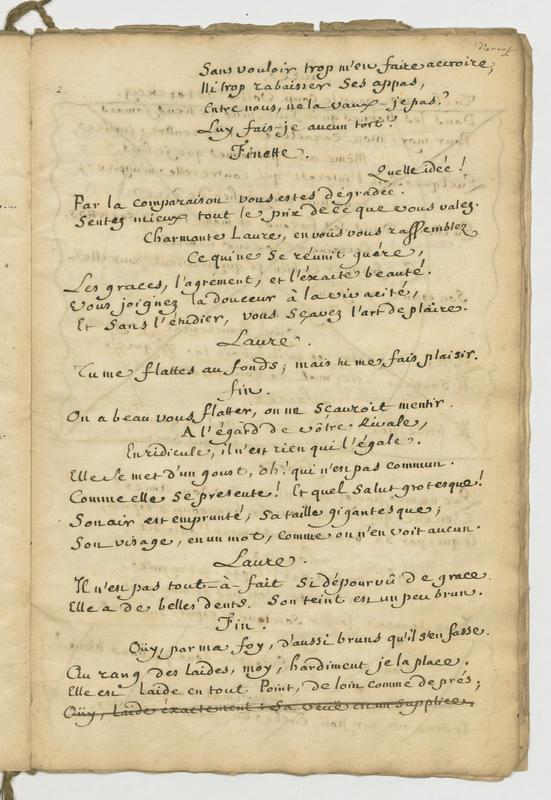 Sans vouloir trop m'en faire accroire,
Ni trop rabaisser Ses appas,
2.
Entre nous, ne la vaux-je pas?
Luy fais-je aucun tort?
Finette.
Quelle idée!
Par la comparaison vous estes dégradée.
Sentez mieux tout le prix de ce que vous valez.
Charmante Laure, en vous vous rassemblez
Ce qui ne Se réunit guére,
Les graces, l'agrément, et l'éxacte beauté.
Vous joignez la douceur à la vivacité,
Et Sans l'étudier, vous Sçavez l'art de plaire.
Laure.
Tu me flattes au fonds; mais tu me fais plaisir.
fin.
On a beau vous flatter, on ne Sçauroit mentir.
A l'égard de vôtre Rivale,
En ridicule, il n'est rien qui l'égale.
Elle Se met d'un goust, oh! qui n'est pas commun.
Comme elle Se presente! Et quel Salut grotesque!
Son air est emprunté; Sa taille gigantesque;
Son visage, en un mot, comme on n'en voit aucun.
Laure.
Il n'est pas tout-à-fait Si dépourvû de grace.
Elle a de belles dents. Son teint est un peu brun.
Fin.
Oüy, par ma foy, d'aussi bruns qu'il s'en fasse.
Au rang des laides, moy, hardiment je la place.
Elle est laide en tout Point, de loin comme de prés;
Oüy, laide éxactement: Sa veüe est un Supplice,